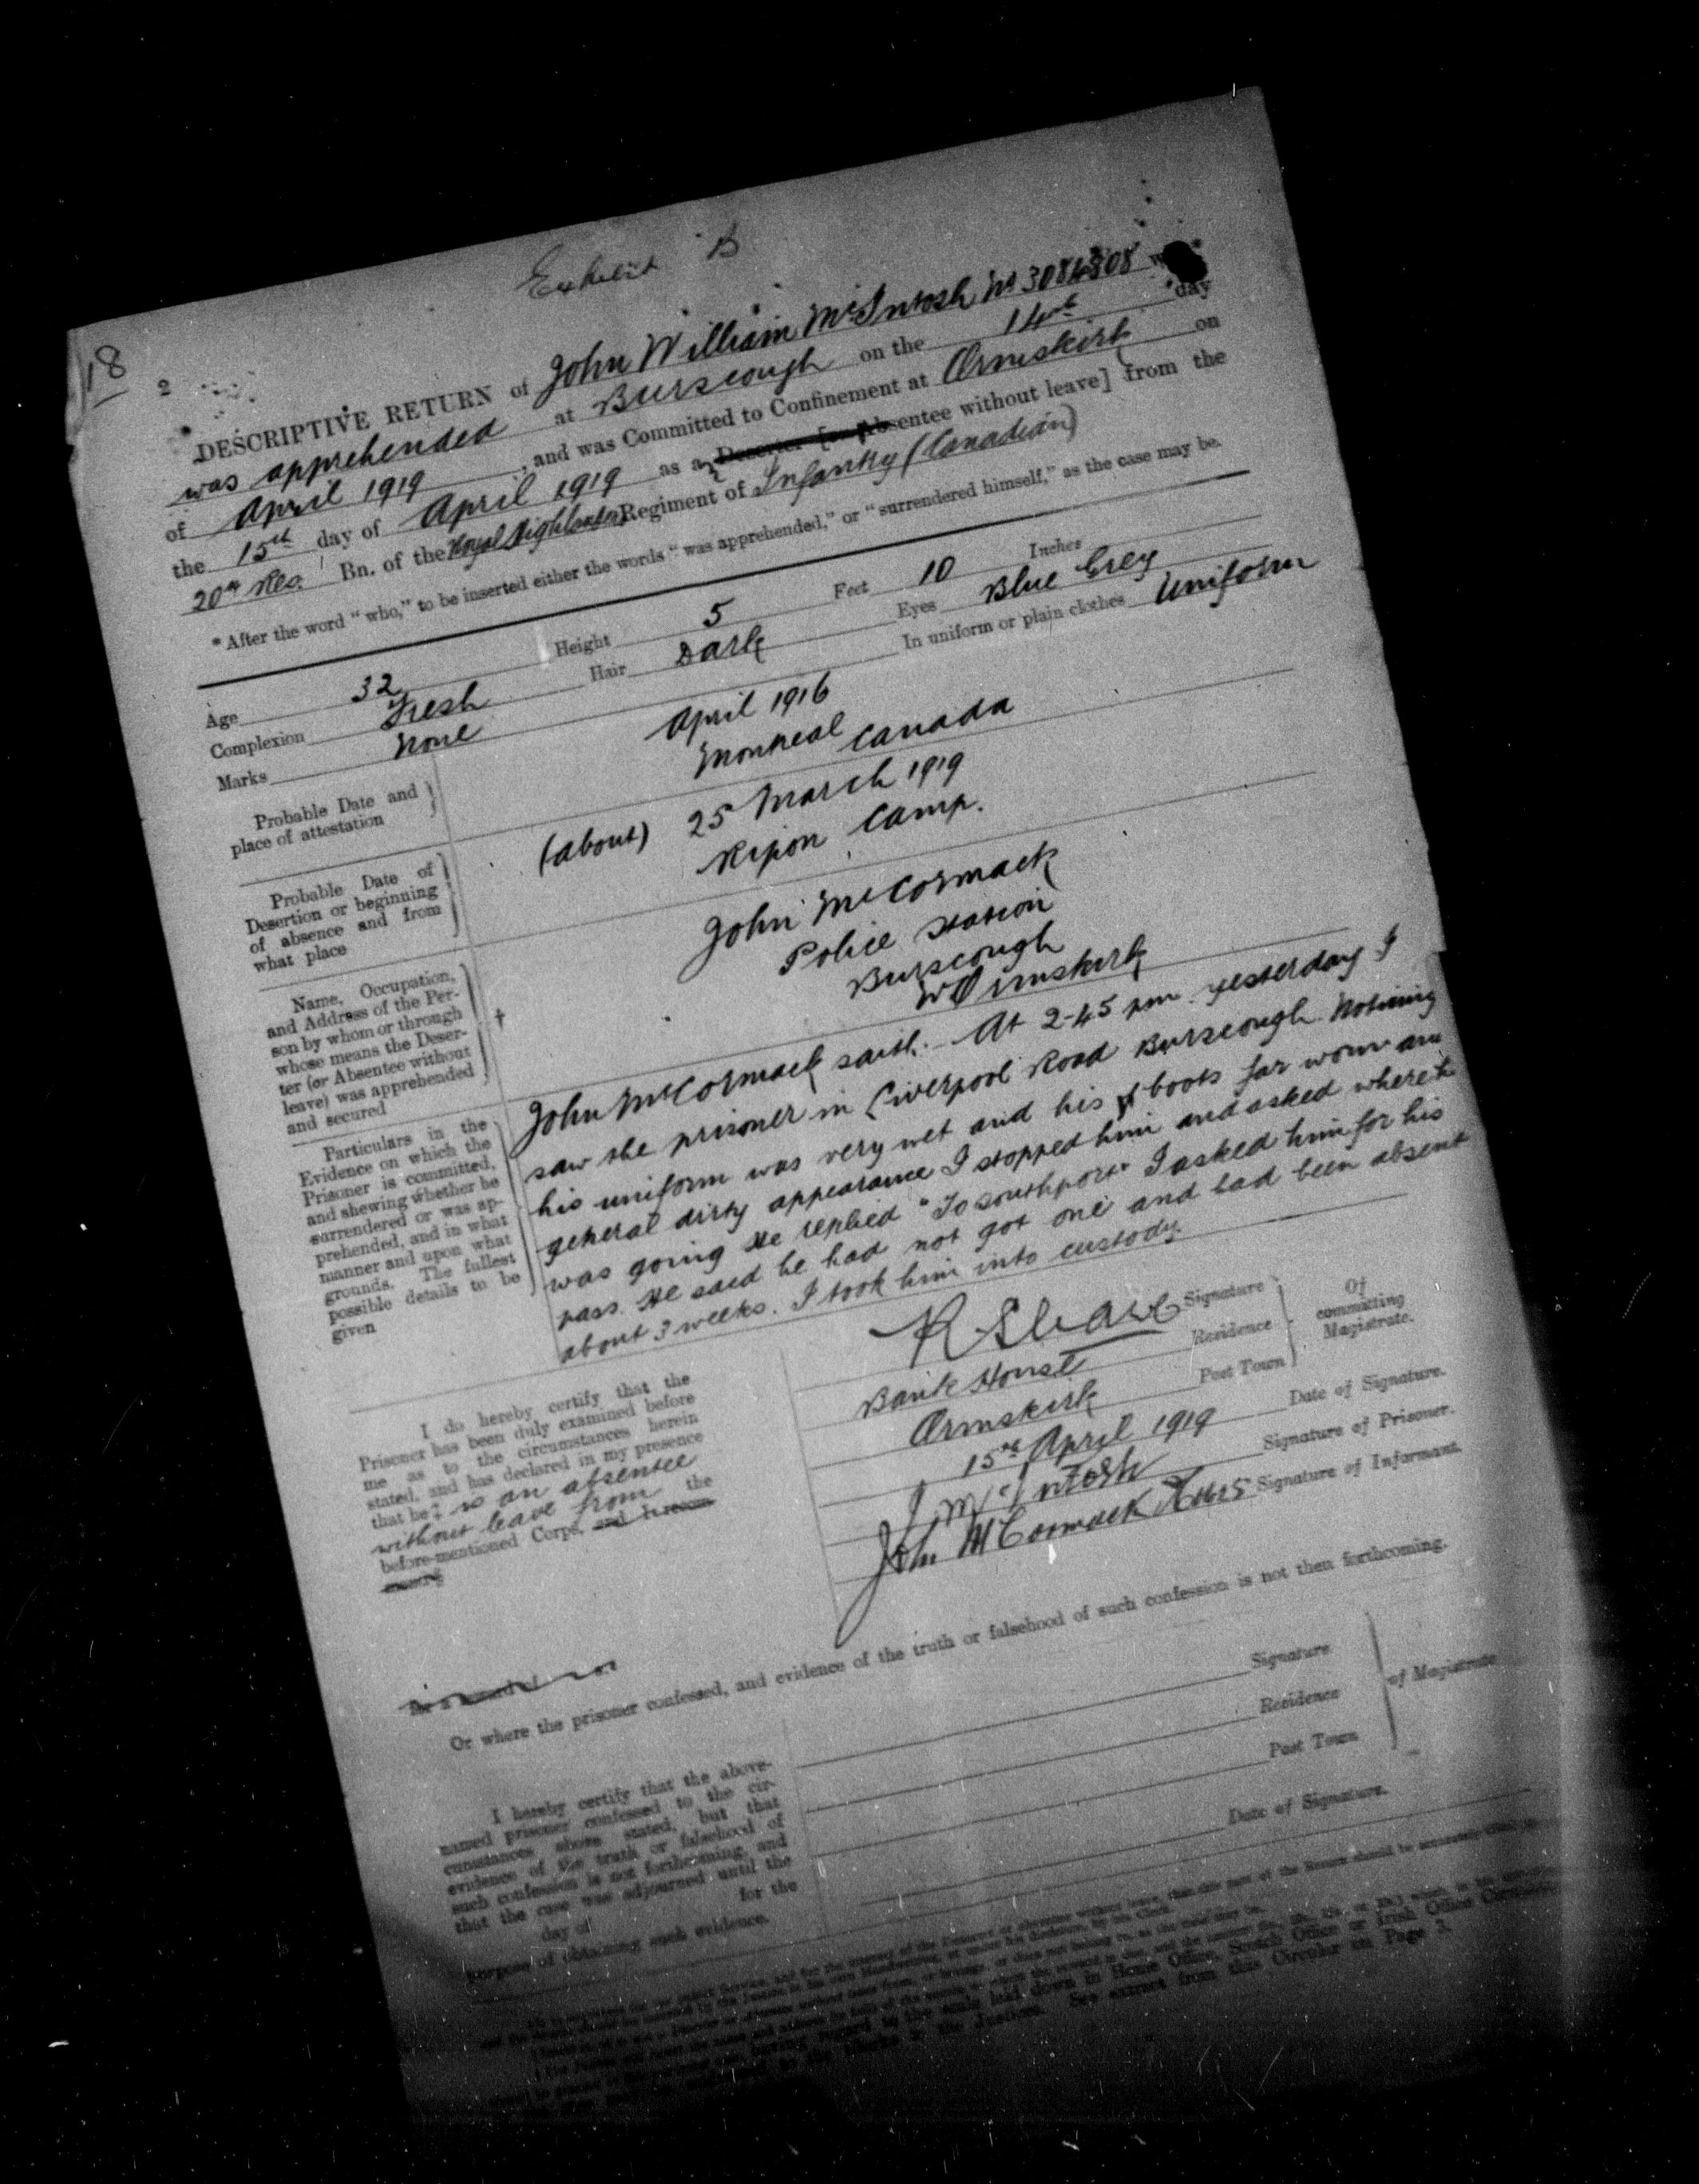 Exhibit B
18
2
DESCRIPTIVE RETURN of John William McIntosh No 3084808
was apprehended at Burscough on the 14th day
of April 1919, and was Committed to Confinement at Ormskirk on
the 15th day of April 1919 as a Deserter [or Absentee without leave] from the
20th Res. Bn. of the Royal Highlanders Regiment of Infantry (Canadian)
* After the word "who," to be inserted either the words "was apprehended," or "surrendered himself," as the case may be.
Age 32 Height 5 Feet 10 Inches
Complexion Fresh Hair Dark Eyes Blue Grey
Marks None In uniform or plain clothes Uniform
Probable Date and
place of attestation
April 1916
Montreal Canada
Probable Date of
Desertion or beginning
of absence and from
what place
(about) 25 March 1919
Ripon Camp.
Name, Occupation,
and Address of the Per-
son by whom or through
whose means the Deser-
ter (or Absentee without
leave) was apprehended
and secured
†
John McCormack
Police Station
Burscough
Ormskirk
Particulars in the
Evidence on which the
Prisoner is committed,
and shewing whether he
surrendered or was ap-
prehended, and in what
manner and upon what
grounds. The fullest
possible details to be
given
John McCormack saith:- At 2-45 pm yesterday I
saw the prisoner in Liverpool Road Burscough. Noticing
his uniform was very wet and his boots far worn and
general dirty appearance I stopped him and asked where he
was going He replied "To Southport" I asked him for his
pass. He said he had not got one and had been absent
about 3 weeks. I took him into custody.
I do hereby certify that the
Prisoner has been duly examined before
me as to the circumstances herein
stated, and has declared in my presence
that he ‡ is an absentee
without leave from the
before-mentioned Corps, and I recom-
Signature
Bank House Residence
Ormskirk Post Town
Of
committing
Magistrate.
15th April 1919 Date of Signature.
J McIntosh Signature of Prisoner.
John McCormack Signature of Informant.
for a reward of
Or where the prisoner confessed, and evidence of the truth or falsehood of such confession is not then forthcoming.
I hereby certify that the above-
named prisoner confessed to the cir-
cumstances above stated, but that
evidence of the truth or falsehood of
such confession is not forthcoming, and
that the case was adjourned until the
day of for the
purpose of obtaining such evidence.
Signature
Residence
Post Town
of Magistrate
Date of Signature.
laid down in Home Office, Scotch Office or Irish Office
See extract from this Circular on Page 3.